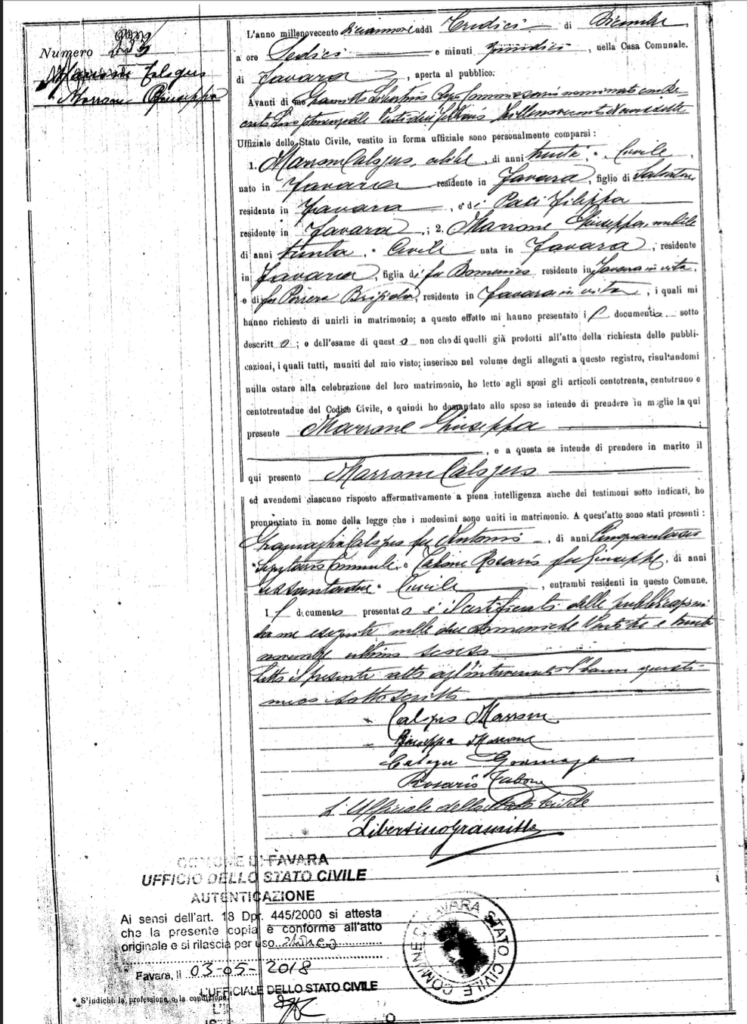 Numero 239
Marrone Calogero
Marrone Giuseppa
L'anno millenovecento diciannove addì Tredici di Dicembre
a ore Sedici e minuti quindici, nella Casa Comunale.
di Favara, aperta al pubblico.
Avanti di me Libertino Commissario nominato con de-
Uffiziale dello Stato Civile, vestito in forma uffiziale sono personalmente comparsi:
1. Marrone Calogero, celibe, di anni trenta, Civile
nato in Favara residente in Favara, figlio di Salvatore
residente in Favara, e di Paci Filippa
residente in Favara; 2. Marrone Giuseppa, nubile
di anni trenta, Civile nata in Favara, residente
in Favara, figlia di fu Domenico, residente in Favara in vita
e di fu Brigida, residente in Favara in vita, i quali mi
hanno richiesto di unirli in matrimonio; a questo effetto mi hanno presentato i l documenti o sotto
descritt o; e dell'esame di quest o non che di quelli già prodotti all'atto della richiesta delle pubbli-
cazioni, i quali tutti, muniti del mio visto; inserisco nel volume degli allegati a questo registro, risultandomi
nulla ostare alla celebrazione del loro matrimonio, ho letto agli sposi gli articoli centotrenta, centotruno e
centotrentadue del Codice Civile, e quindi ho domandato allo sposo se intende di prendere in moglie la qui
presente Marrone Giuseppa
, e a questa se intende di prendere in marito il
qui presente Marrone Calogero
ed avendomi ciascuno risposto affermativamente a piena intelligenza anche dei testimoni sotto indicati, ho
pronunziato in nome della legge che i medesimi sono uniti in matrimonio. A quest'atto sono stati presenti:
Gramaglia Calogero fu Antonio, di anni Cinquantasei
Segretario Comunale e Tabone Rosario fu Giuseppe, di anni
sessantadue, Civile, entrambi residenti in questo Comune.
I l documento presentato è il certificato delle pubblicazioni
da me eseguite nelle due domeniche ventitre e trenta
novembre ultimo scorso
Letto il presente atto agl'intervenuti l'hanno questi
meco sottoscritto
Calogero Marrone
Giuseppa Marrone
Calogero Gramaglia
Rosario Tabone
L'Uffiziale dello Stato Civile
Libertino Gramitto
COMUNE DI FAVARA
UFFICIO DELLO STATO CIVILE
AUTENTICAZIONE
Ai sensi dell'art. 18 Dpr. 445/2000 si attesta
che la presente copia è conforme all'atto
originale e si rilascia per uso
Favara, lì 03-05-2018
L'UFFICIALE DELLO STATO CIVILE
* S'indichi la professione o la condizione.
COMUNE DI FAVARA STATO CIVILE